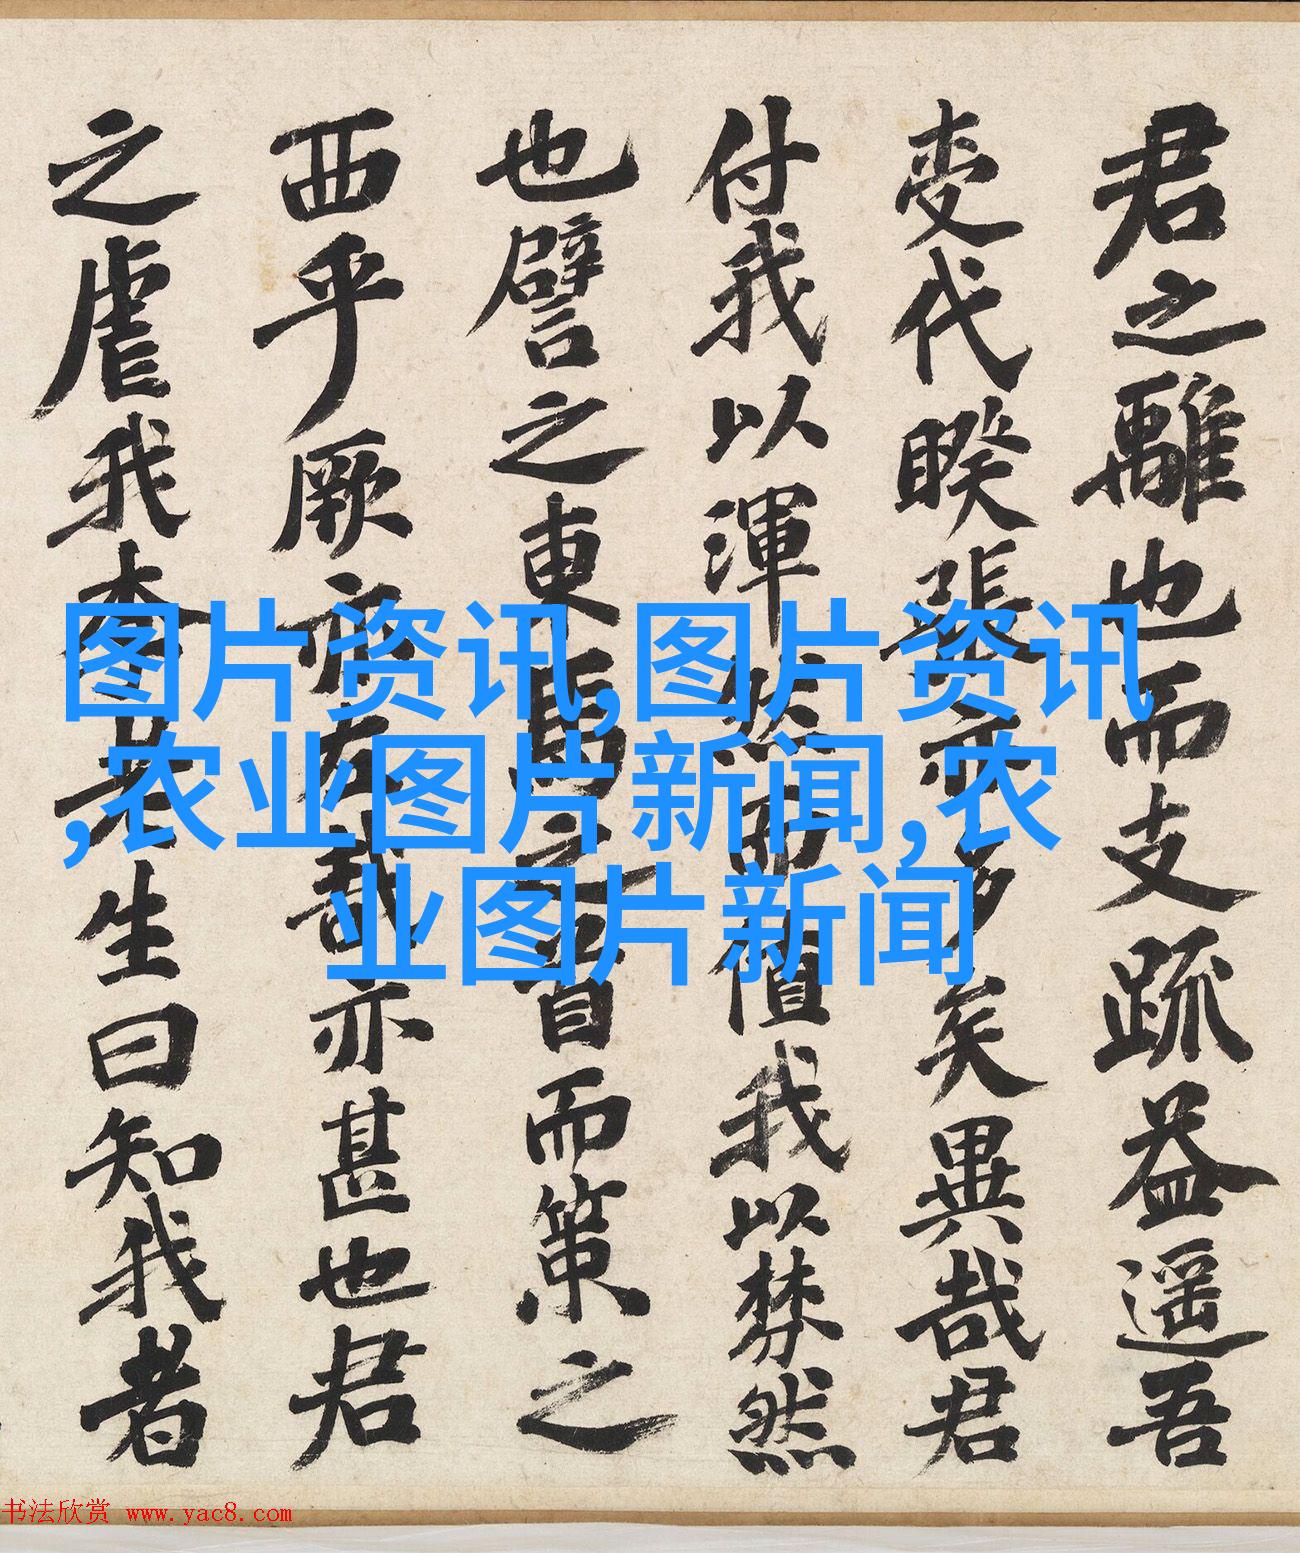 君之離也而支疏益遥吾
变代睽張亦多矣異哉君
付我以渾然而值我以棼然
也譬之東馬之首而策之
西乎厥亦左哉亦甚也君
之虐我李老生曰知我者
图片资讯,图片资讯
,农业图片新闻,农
业图片新闻
书法欣赏 www.yac8.com